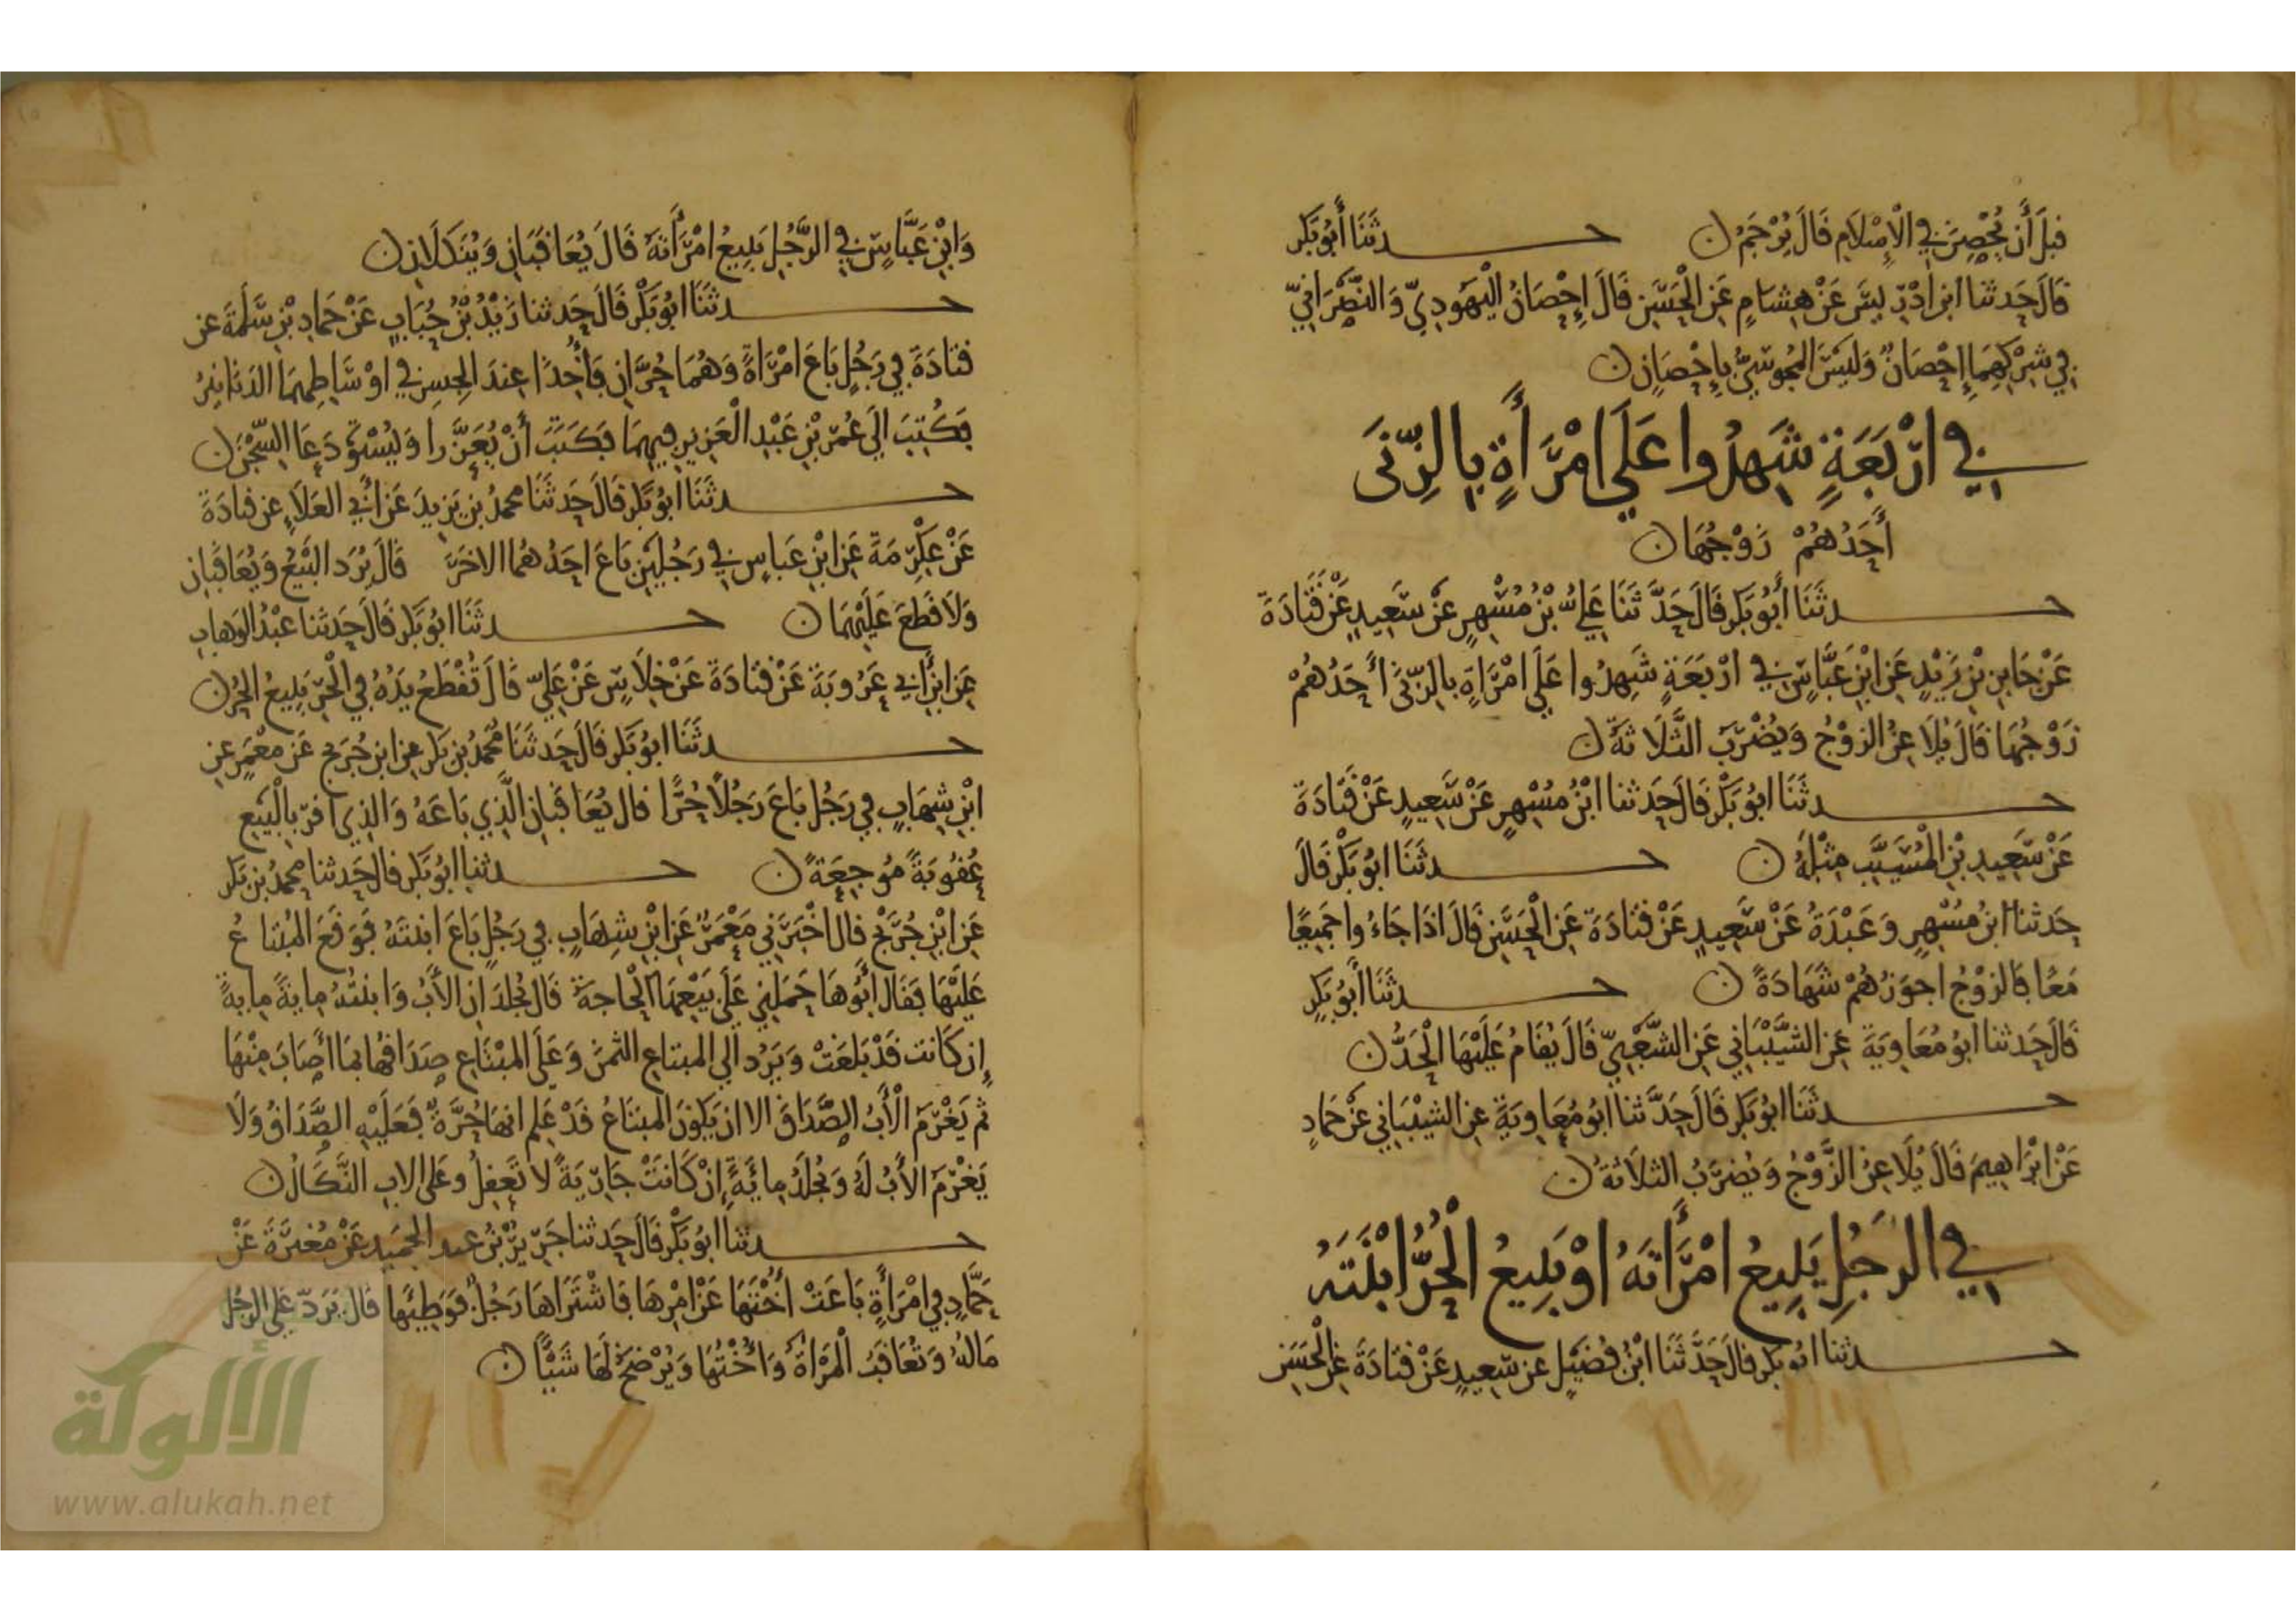 قبل أَن يُحْصِنَ في الْإِسْلَامِ قَالَ يُرْجَمُ ن حـــدثَنَا أَبُو بَكر
قَالَ حَدثنا ابن ادْرِيسَ عَنْ هِشامٍ عَنِ الْحَسَنِ قَالَ إِحْصَانُ الْيَهُودِيّ وَالنَّصْرَانِيّ
فِي شِرْكِهِمَا إِحْصَانٌ وَلَيْسَ المجُوسِيُّ بِإِحْصَانٍ ن
في ارْبَعَةٍ شَهِدُوا عَلَي امْرَأَةٍ بِالزِّنَى
أَحَدُهُمْ زَوْجُهَا ن
حـــدثَنَا أَبُو بَكر قَالَ حَدَّثَنَا عَلِيُّ بْنُ مُسْهِرٍ عَنْ سَعِيدٍ عَنْ قَتَادَةَ
عَنْ جَابِرِ بْنِ زَيْدٍ عَنِ ابْنِ عَبَّاسٍ في ارْبَعَةٍ شَهِدُوا عَلَي امْرَاةٍ بالزِّنَى أَحَدُهُمْ
زَوْجُهَا قَالَ يُلَاعِنُ الزَوْجُ وَيُضْرَبُ الثَّلَاثَةُ ن
حـــدثَنَا ابُو بَكْر قَالَ حَدَثنا ابْنُ مُسْهِرٍ عَنْ سَعِيدٍ عَنْ قَتَادَةَ
عَنْ سَعِيدِ بْنِ الْمُسَيَّبِ مِثْلَهُ ن حـــدثَنَا ابُو بَكْر قَالَ
حَدثنا ابنُ مُسْهِرٍ وَعَبْدَةُ عَنْ سَعِيدٍ عَنْ قتَادَةَ عَنِ الْحَسَنِ قَالَ اذَا جَاءُوا جَمِيعًا
مَعًا فَالزوْجُ اجوَزُهُمْ شَهَادَةً ن حـــدثَنَا أَبُو بَكرٍ
قَالَ حَدثنا ابُو مُعَاوِيَةَ عَنِ الشَّيْبَانِي عَنِ الشَّعْبِيّ قَالَ يُقَامُ عَلَيْهَا الْحَدُّ ن
حـــدثَنَا ابُو بَكر قَالَ حَدَّثنا ابُو مُعَاوِيَةَ عنِ الشيْبَانِي عَنْ حَمَادٍ
عَنْ ابْرَاهِيمَ قَالَ يُلَاعِنُ الزَّوْجُ وَيُضرَبُ الثلَاثَةُ ن
في الرَجُلِ يَبِيعُ امْرَأَتَهُ اوْ يَبِيعُ الْحُرُّ ابْنَتَهُ
حـــدثنا ابُو بَكر قَالَ حَدَّثَنَا ابْنُ فُضَيْلٍ عن سَعِيدٍ عَنْ قتَادَةَ عَنِ الْحَسَنِ
وَابْنِ عَبَّاسٍ في الرَّجُلِ يَبِيعُ امْرَأَتَهُ قَالَ يُعَاقَبَانِ وَيُنَكَّلَانِ ن
حـــدثَنَا ابُو بَكْر قَالَ حَدثنا زَيْدُ بْنُ حُبَابٍ عَنْ حَمادِ بْنِ سَلَمَةَ عن
قتَادَةَ فِي رَجُلٍ بَاعَ امْرَاةً وَهُمَا حُرَّانِ فَأُخِذَا عِندَ الجِسرِ في اوْسَاطِهِمَا الدَنانِيرُ
فَكُتِبَ الَي عُمَرَ بْنِ عَبْدِ الْعَزِيزِ فِيهِمَا فَكَتَبَ أَنْ يُعَزَّرا وَيُسْتَوْدَعَا السِّجْنَ ن
حـــدثَنَا ابُو بَكر قَالَ حَدثَنَا محمدُ بن يَزيدَ عَنْ أَبِي العَلَاءِ عن قتادَةَ
عَنْ عِكْرِمَةَ عَنِ ابْنِ عَبَاسٍ في رَجُلَيْنِ بَاعَ احَدُهُمَا الاخَرَ قَالَ يُرَد البَيْعُ وَيُعَاقَبَانِ
وَلَا قَطعَ عَلَيْهِمَا ن حـــدثَنَا ابُو بَكر قَالَ حَدَثنا عَبْدُ الوَهابِ
عَنِ ابْنِ أَبِي عَرُوبَةَ عَنْ قتَادَةَ عَنْ خِلَاسٍ عَنْ عَلِيّ قَالَ تُقْطَعُ يَدُهُ فِي الْحُرِّ يَبِيعُ الحُرَّ ن
حـــدثَنَا ابُو بَكر قَالَ حَدثَنَا مُحمدُ بن بَكر عن ابنِ جُرَيج عَنْ مَعْمَرٍ عنِ
ابْنِ شِهَابٍ فِي رَجُل بَاعَ رَجُلاً حُرًّا قال يُعَاقَبَانِ الَّذِي بَاعَهُ وَالذِي اقرَّ بِالْبَيْعِ
عُقُوبَةً مُوجِعَةً ن حـــدثنا ابُو بَكر قال حَدثنا محمدُ بن بَكر
عَنِ ابْنِ جُرَيْجٍ قال اخْبَرَنِي مَعْمَرٌ عَنِ ابْنِ شِهَابٍ فِي رَجُلٍ بَاعَ ابنتَهُ فَوَقَعَ المُبْتاعُ
عَلَيْهَا فقَالَ أَبُوهَا حَمَلَنِي عَلَي بَيْعِهَا الْحاجةُ قَالَ يُجْلَدَانِ الأَبُ وَابنتُهُ مِايَةً مِايةً
إِن كَانت قَدْ بَلَغَتْ وَيَرُد الي المبتاعِ الثمنَ وَعَلَي المبْتَاعِ صَدَاقُهَا بمَا أَصَابَ مِنْهَا
ثم يَغْرَمُ الْأَبُ الصَّدَاقَ الا ان يَكونَ المبتَاعُ قَدْ عَلِم انهَا حُرَّةٌ فَعَلَيْهِ الصَّدَاقُ وَلَا
يَغْرَمُ الأَبُ لَهُ وَيُجلَدُ مِائةً إِنْ كَانَتْ جَارِيَةً لَا تَعقِلُ وعَلى الابِ النَّكَالُ ن
حـــدثنا ابُو بَكْر قَالَ حَدثنا جَرِيرُ بْنُ عبد الحَمِيدِ عَنْ مُغيرَةَ عَنْ
حَمَّادٍ فِي امْرَأَةٍ بَاعَتْ أُخْتَهَا عَنْ امْرِهَا فَاشْتَرَاهَا رَجُلٌ فَوَطِئَها قَالَ يَرَدّ عَلي الرجُل
مَالهُ وَتُعَاقَبُ الْمَرْأَةُ وَأُخْتُهَا وَيُرْضَخُ لَهَا شَيْئًا ن
الألوكة
www.alukah.net